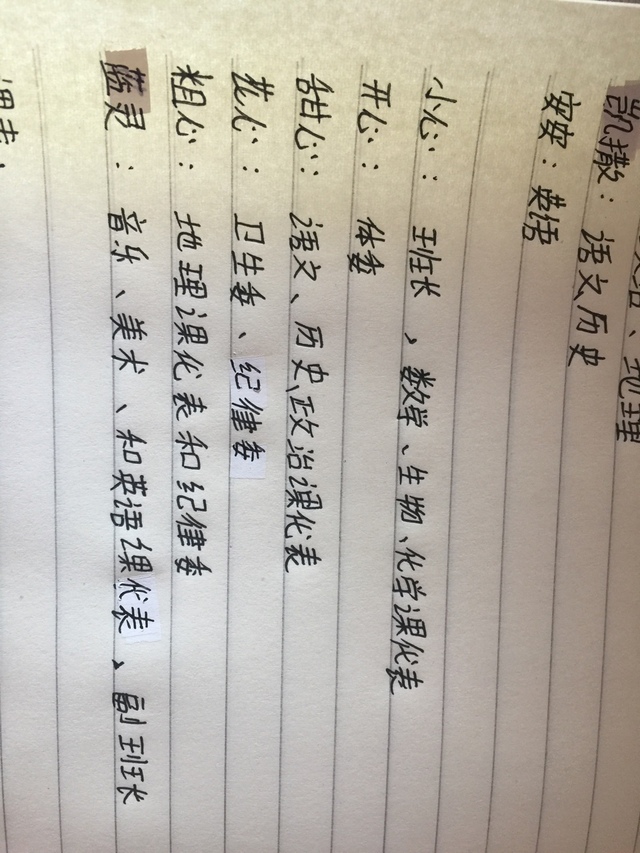 、地理
凯撒：语文、历史
安安：英语
小心：班长、数学、生物、化学课代表
开心：体委
甜心：语文、历史、政治课代表
花心：卫生委、纪律委
粗心：地理课代表和纪律委
蓝灵：音乐、美术、和英语课代表、副班长